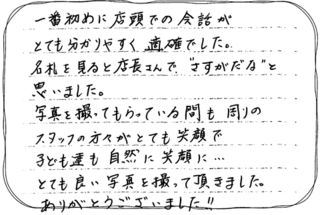 一番初めに店頭での会話が
とても分かりやすく適確でした。
名札を見ると店長さんで、"さすがだな"と
思いました。
写真を撮ってもらっている間も周りの
スタッフの方々がとても笑顔で
子ども達も自然に笑顔に…
とても良い写真を撮って頂きました。
ありがとうございました!!